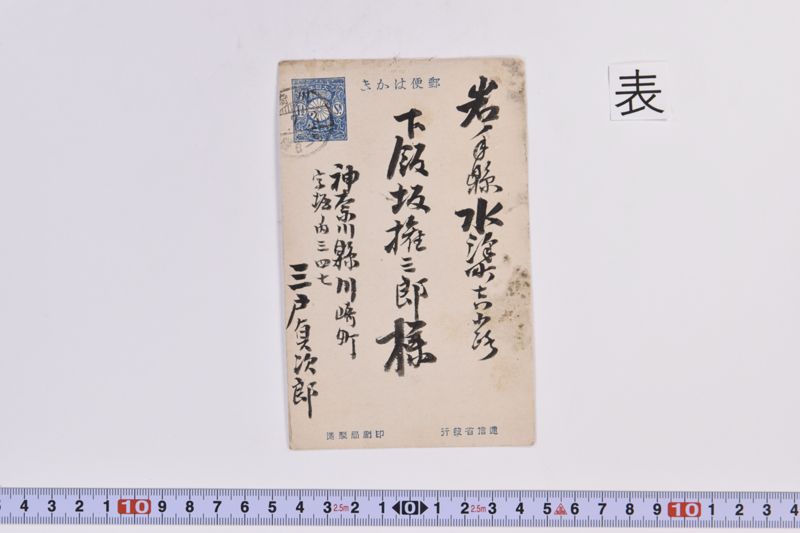 表
郵便はかき
岩手縣水澤町吉小路
下飯坂権三郎様
神奈川縣川崎町
字堀内三四七
三戸貞次郎
印刷局製造
逓信省発行
4 3 2 1 10 9 8 7 6 5 4 3 2.5m 2 1 0 1 2 2.5m 3 4 5 6 7 8 9 10 1 2 3 4